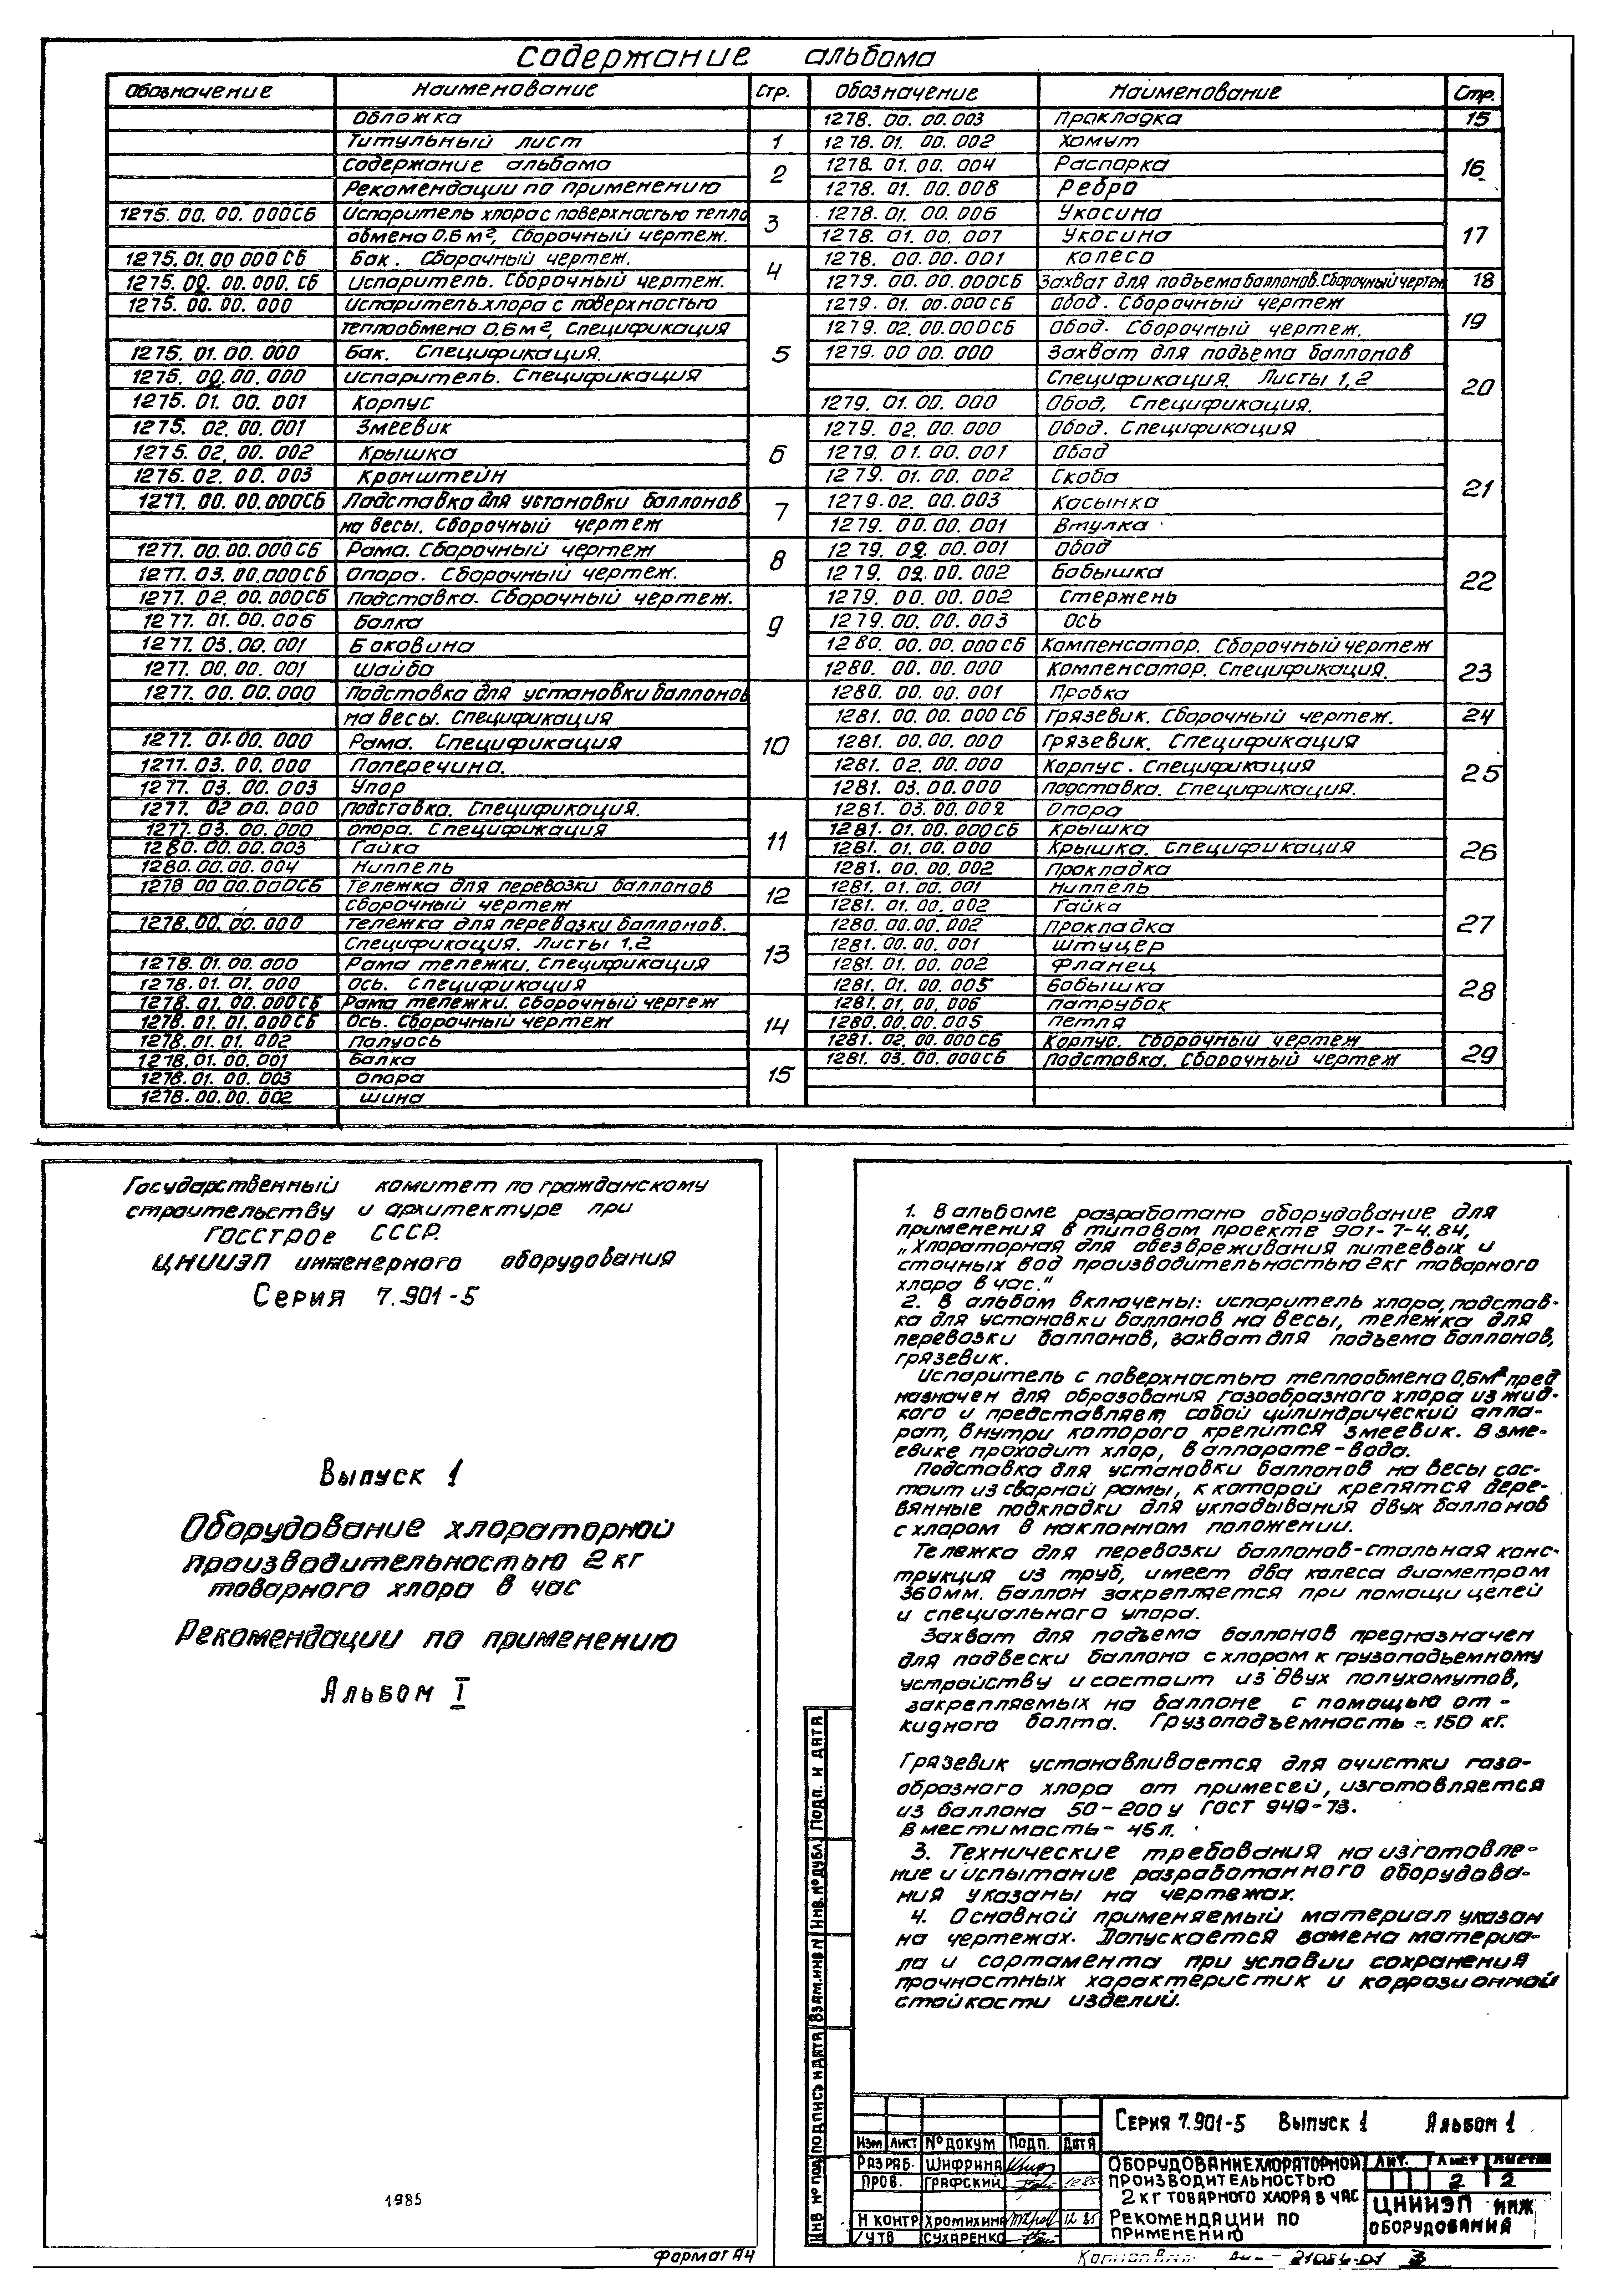 Содержание альбома
Обозначение Наименование Стр. Обозначение Наименование Стр.
Обложка 1278. 00. 00. 003 Прокладка 15
Титульный лист 1 1278. 01. 00. 002 Хомут
Содержание альбома 2 1278. 01. 00. 004 Распорка 16
Рекомендации по применению 1278. 01. 00. 008 Ребро
1275. 00. 00. 000СБ Испаритель хлора с поверхностью тепло 3 1278. 01. 00. 006 Укосина
обмена 0,6 м², Сборочный чертеж. 1278. 01. 00. 007 Укосина 17
1275. 01. 00 000 СБ Бак. Сборочный чертеж. 4 1278. 00. 00. 001 Колесо
1275. 02. 00. 000. СБ Испаритель. Сборочный чертеж. 1279. 00. 00. 000СБ Захват для подъема баллонов. Сборочный чертеж 18
1275. 00. 00. 000 Испаритель хлора с поверхностью 1279. 01. 00. 000 СБ Обод. Сборочный чертеж 19
теплообмена 0,6 м², Спецификация 1279. 02. 00. 000СБ Обод. Сборочный чертеж.
1275. 01. 00. 000 Бак. Спецификация. 5 1279. 00 00. 000 Захват для подъема баллонов
1275. 02. 00. 000 Испаритель. Спецификация Спецификация. Листы 1,2 20
1275. 01. 00. 001 Корпус 1279. 01. 00. 000 Обод. Спецификация.
1275. 02. 00. 001 Змеевик 1279. 02. 00. 000 Обод. Спецификация
1275. 02. 00. 002 Крышка 6 1279. 01. 00. 001 Обод
1275. 02. 00. 003 Кронштейн 1279. 01. 00. 002 Скоба
1277. 00. 00. 000СБ Подставка для установки баллонов 7 1279. 02. 00. 003 Косынка 21
на весы. Сборочный чертеж 1279. 00. 00. 001 Втулка
1277. 00. 00. 000 СБ Рама. Сборочный чертеж 8 1279. 02. 00. 001 Обод
1277. 03. 00. 000СБ Опора. Сборочный чертеж. 1279. 02. 00. 002 Бобышка
1277. 02. 00. 000СБ Подставка. Сборочный чертеж. 1279. 00. 00. 002 Стержень 22
1277. 01. 00. 006 Балка 9 1279. 00. 00. 003 Ось
1277. 03. 00. 001 Боковина 1280. 00. 00. 000 СБ Компенсатор. Сборочный чертеж
1277. 00. 00. 001 Шайба 1280. 00. 00. 000 Компенсатор. Спецификация. 23
1277. 00. 00. 000 Подставка для установки баллонов 1280. 00. 00. 001 Пробка
на весы. Спецификация 1281. 00. 00. 000 СБ Грязевик. Сборочный чертеж. 24
1277. 01. 00. 000 Рама. Спецификация 10 1281. 00. 00. 000 Грязевик. Спецификация
1277. 03. 00. 000 Поперечина. 1281. 02. 00. 000 Корпус. Спецификация 25
1277. 03. 00. 003 Упор 1281. 03. 00. 000 Подставка. Спецификация.
1277. 02 00. 000 Подставка. Спецификация. 1281. 03. 00. 002 Опора
1277. 03. 00. 000 Опора. Спецификация 11 1281. 01. 00. 000 СБ Крышка
1280. 00. 00. 003 Гайка 1281. 01. 00. 000 Крышка. Спецификация 26
1280. 00. 00. 004 Ниппель 1281. 00. 00. 002 Прокладка
1278 00 00. 000СБ Тележка для перевозки баллонов 12 1281. 01. 00. 001 Ниппель
Сборочный чертеж 1281. 01. 00. 002 Гайка
1278. 00. 00. 000 Тележка для перевозки баллонов. 1280. 00. 00. 002 Прокладка 27
Спецификация. Листы 1,2 13 1281. 00. 00. 001 Штуцер
1278. 01. 00. 000 Рама тележки. Спецификация 1281. 01. 00. 002 Фланец
1278. 01. 01. 000 Ось. Спецификация 1281. 01. 00. 005 Бобышка 28
1278. 01. 00. 000СБ Рама тележки. Сборочный чертеж 1281. 01. 00. 006 Патрубок
1278. 01. 01. 000 СБ Ось. Сборочный чертеж 14 1280. 00. 00. 005 Петля
1278. 01. 01. 002 Полуось 1281. 02. 00. 000 СБ Корпус. Сборочный чертеж 29
1278. 01. 00. 001 Балка 1281. 03. 00. 000СБ Подставка. Сборочный чертеж
1278. 01. 00. 003 Опора 15
1278. 00. 00. 002 Шина
Государственный комитет по гражданскому
строительству и архитектуре при
Госстрое СССР.
ЦНИИЭП инженерного оборудования
Серия 7.901-5
Выпуск 1
Оборудование хлораторной
производительностью 2 кг
товарного хлора в час
Рекомендации по применению
Альбом I
1985
Формат А4
1. В альбоме разработано оборудование для
применения в типовом проекте 901-7-4.84,
„Хлораторная для обезвреживания питьевых и
сточных вод производительностью 2 кг товарного
хлора в час."
2. В альбом включены: испаритель хлора, подстав-
ка для установки баллонов на весы, тележка для
перевозки баллонов, захват для подъема баллонов,
грязевик.
Испаритель с поверхностью теплообмена 0,6м² пред
назначен для образования газообразного хлора из жид-
кого и представляет собой цилиндрический аппа-
рат, внутри которого крепится змеевик. В зме-
евике проходит хлор, в аппарате - вода.
Подставка для установки баллонов на весы сос-
тоит из сварной рамы, к которой крепятся дере-
вянные подкладки для укладывания двух баллонов
с хлором в наклонном положении.
Тележка для перевозки баллонов - стальная конс-
трукция из труб, имеет два колеса диаметром
360мм. Баллон закрепляется при помощи цепей
и специального упора.
Захват для подъема баллонов предназначен
для подвески баллона с хлором к грузоподъемному
устройству и состоит из двух полухомутов,
закрепляемых на баллоне с помощью от-
кидного болта. Грузоподъемность - 150 кг.
Грязевик устанавливается для очистки газо-
образного хлора от примесей, изготовляется
из баллона 50-200 у ГОСТ 949-73.
Вместимость - 45 л.
3. Технические требования на изготовле-
ние и испытание разработанного оборудова-
ния указаны на чертежах.
4. Основной применяемый материал указан
на чертежах. Допускается замена материа-
ла и сортамента при условии сохранения
прочностных характеристик и коррозионной
стойкости изделий.
Инв № под Подпись и дата Взам. инв N Инв. № дубл. Подп. и дата
Серия 7.901-5 Выпуск 1 Альбом 1
Изм Лист № докум Подп. Дата
Разраб. Шифрина
Пров. Графский 12 85
Н контр Хромихина 12 85
Утв Сухаренко
Оборудование хлораторной
производительностью
2 кг товарного хлора в час
Рекомендации по
применению
Лит. Лист Листов
2 2
ЦНИИЭП инж
оборудования
Копировал
21084-01 3